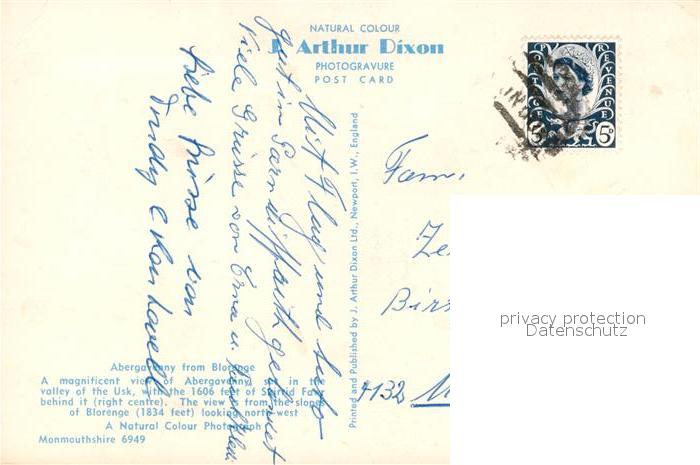 NATURAL COLOUR
J. Arthur Dixon
PHOTOGRAVURE
POST CARD
POSTAGE
REVENUE
5D
Mit Flug und Auto
gut in gelandet
Viele Grüsse von Erna u.
Liebe Grüsse von
Printed and Published by J. Arthur Dixon Ltd., Newport, I.W., England
Fam.
4132
privacy protection
Datenschutz
Abergavenny from Blorenge
A magnificent view of Abergavenny set in the
valley of the Usk, with the 1606 feet of Skirrid Fawr
behind it (right centre). The view is from the slopes
of Blorenge (1834 feet) looking north-west
A Natural Colour Photograph
Monmouthshire 6949